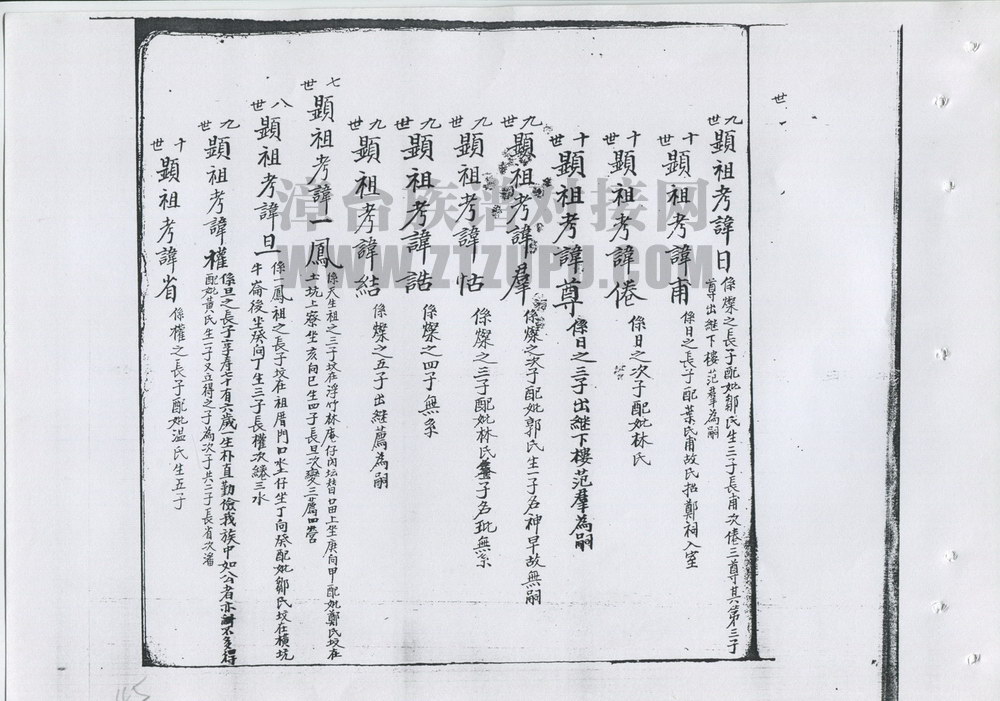 世
九世 顯祖考諱日 係燦之長子配妣鄒氏生三子長甫次倦三尊其第三子
尊出継下樓范羣為嗣
十世 顯祖考諱甫 係日之長子配葉氏甫故氏招鄭祠入室
十世 顯祖考諱倦 係日之次子配妣林氏
十世 顯祖考諱尊 係日之三子出継下樓范羣為嗣
九世 顯祖考諱羣 係燦之次子配妣郭氏生一子名神早故無嗣
九世 顯祖考諱怙 係燦之三子配妣林氏養子名玭無系
九世 顯祖考諱誥 係燦之四子無系
九世 顯祖考諱結 係燦之五子出継薦為嗣
七世 顯祖考諱一鳳 係天生祖之三子坟在浮竹林庵仔內坛口田上坐庚向甲配妣鄭氏坟在
土坑上寮坐亥向巳生四子長旦次變三薦四營
八世 顯祖考諱旦 係一鳳祖之長子坟在祖厝門口坐仔坐丁向癸配妣鄒氏坟在橫坑
牛崙後坐癸向丁生三子長權次繙三水
九世 顯祖考諱權 係旦之長子享寿七十有六歲一生朴直勤儉我族中如公者亦不多得
配妣黃氏生一子又立得之子為次子共二子長省次潘
十世 顯祖考諱省 係權之長子配妣温氏生五子
漳台族谱对接网
WWW.ZTZUPU.COM
165